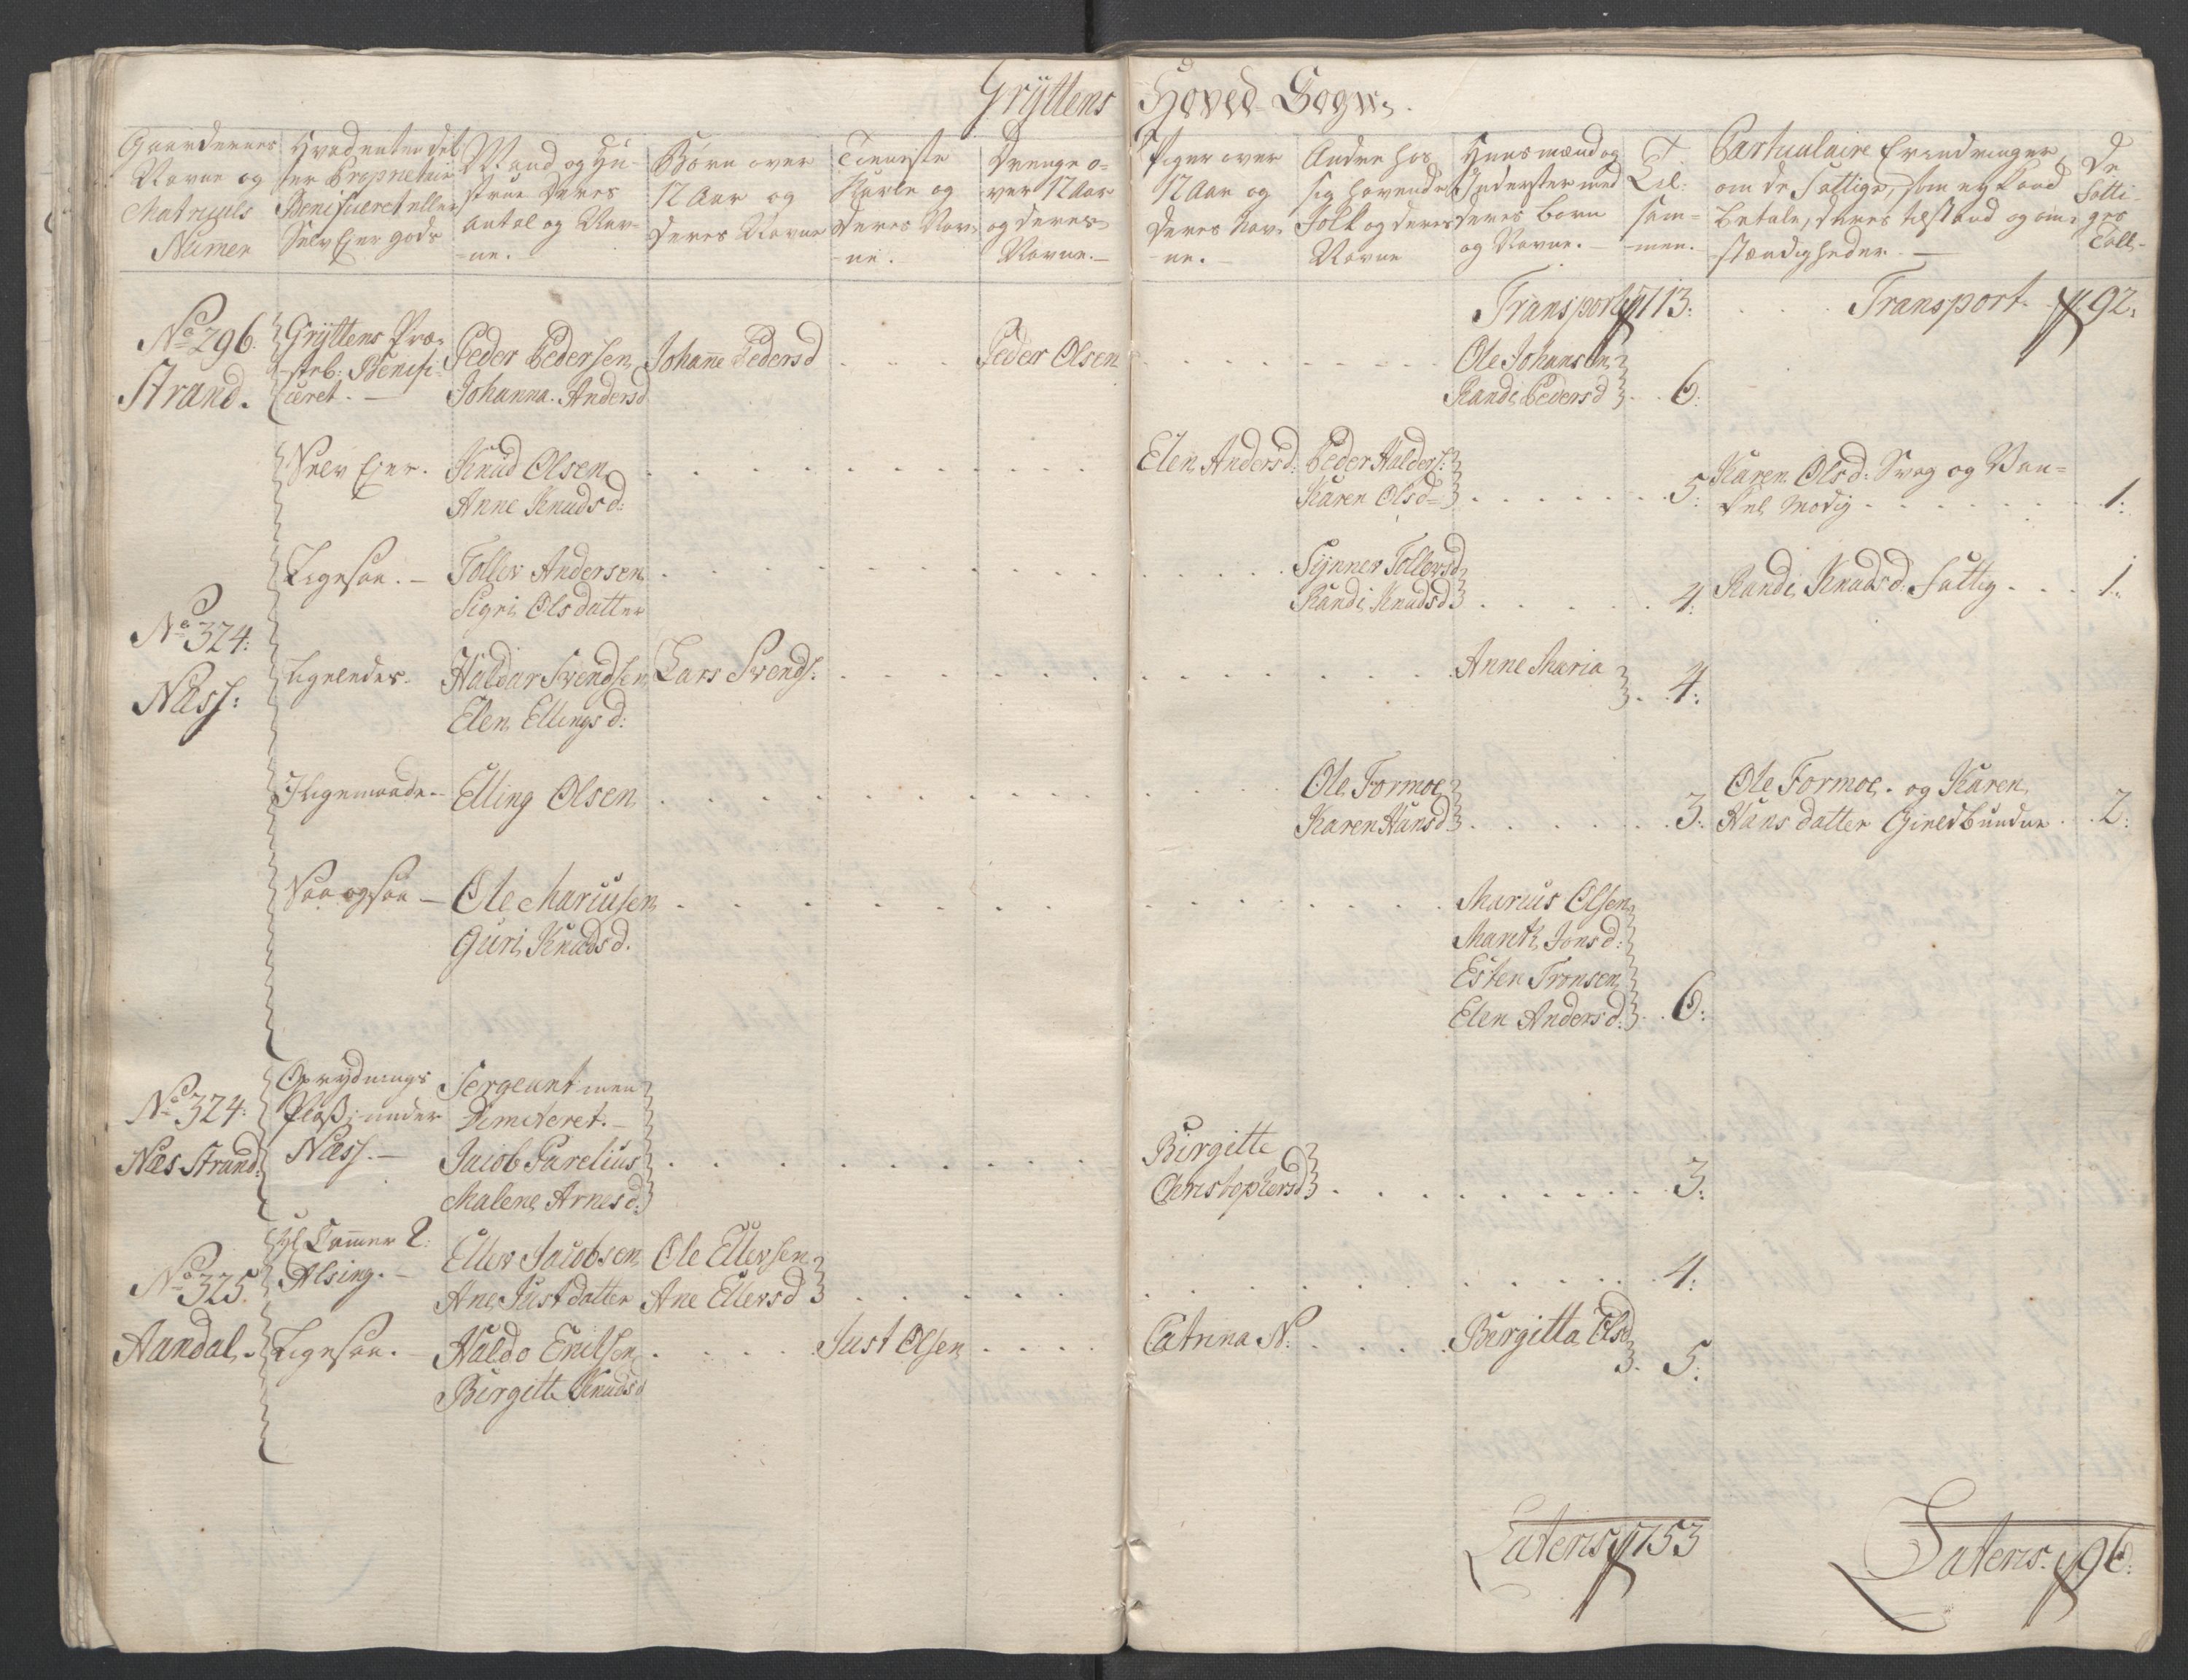 Gryttens Hoved-Sogn.
Gaardernes Navne og Matriculs Numer
Hvad enten det er Proprietair Benificeret eller Selv Ejer gods
Mand og Hustrue deres antal og Navne.
Børn over 12 Aar og deres Navne
Tieniste Karle og deres Navne.
Drenge over 12 Aar og deres Navne.
Piger over 12 Aar og deres Navne.
Andre hos sig havende Folk og deres Navne
Huusmænd og Inderster med deres børn og Navne.
Tilsammen.
Particulaire Erindringer, om de fattige, som ej kand betale, deres tilstand og omstændigheder.
De fattiges Tall
Transport 713:
Transport. 92:
No 296. Strand.
Gryttens Præsteb: Benificeret.
Peder Pedersen
Johanna Andersd
Johanne Pedersd
Peder Olsen
Ole Johansen
Randi Pedersd 6:
Selv Ejer.
Knud Olsen
Anne Knudsd:
Elen Andersd:
Peder Halders:
Karen Olsd: 5:
Karen Olsd: Svag og Van=
1:
Ligesaa.
Toller Andersen
Sigri Olsdatter
Synnev Tollevsd
Randi Knudsd 4:
Randi Knudsd: fattig 1:
No 324: Næss:
Ligeledes.
Haldar Svendsen
Elen Ellingsd:
Lars Svends:
Anne Maria 4:
I ligemaade.
Elling Olsen
Ole Formoe
Karen Hansd 3:
Ole Formoe og Karen
Hans datter 2:
Saa ogsaa
Ole Mariusen
Guri Knudsd.
Marius Olsen
Marith Jonsd:
Esten Tronsen
Elen Andersd: 6:
No 324: Næs Strand:
Oprydnings Plass under Næss.
Sergeant men
Dimiteret.
Jacob Parelius
Malene Arnesd:
Birgitte
Christophersd 3:
No 325. Aandal.
Hl Cammer R: Alsing.
Eller Jacobsen
Ane Justdatter
Ole Ellersen
Ane Ellersd 4:
Ligesaa.
Haldo Erichsen
Birgitte Knudsd
Just Olsen
Catrina N:
Bergitta Elsd 5:
Lateris 753
Lateris. 96: